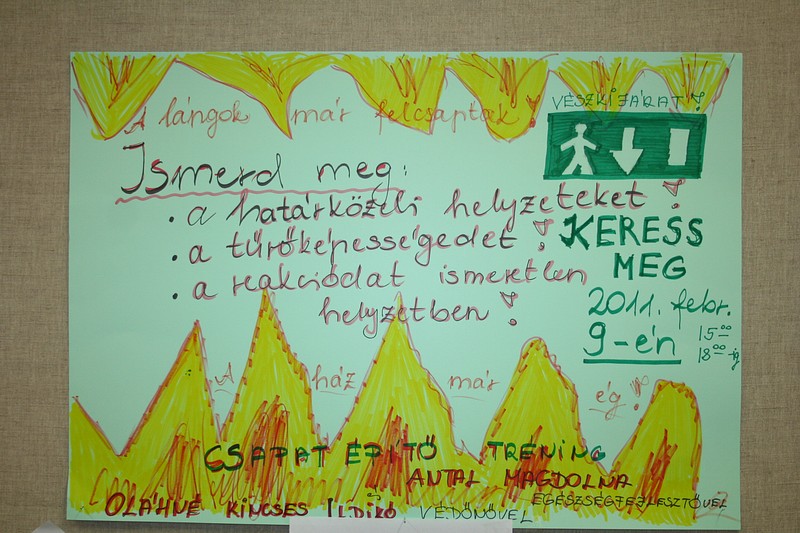 A lángok már felcsaptak!
VÉSZKIJÁRAT!
Ismerd meg:
• a határközeli helyzeteket!
• a tűrőképességedet!
• a reakciódat ismeretlen
helyzetben!
KERESS
MEG
2011. febr.
9-én 15⁰⁰
18⁰⁰-ig
A ház már ég!
CSAPATÉPÍTŐ TRÉNING
ANTAL MAGDOLNA
EGÉSZSÉGFEJLESZTŐVEL
OLÁHNÉ KINCSES ILDIKÓ VÉDŐNŐVEL